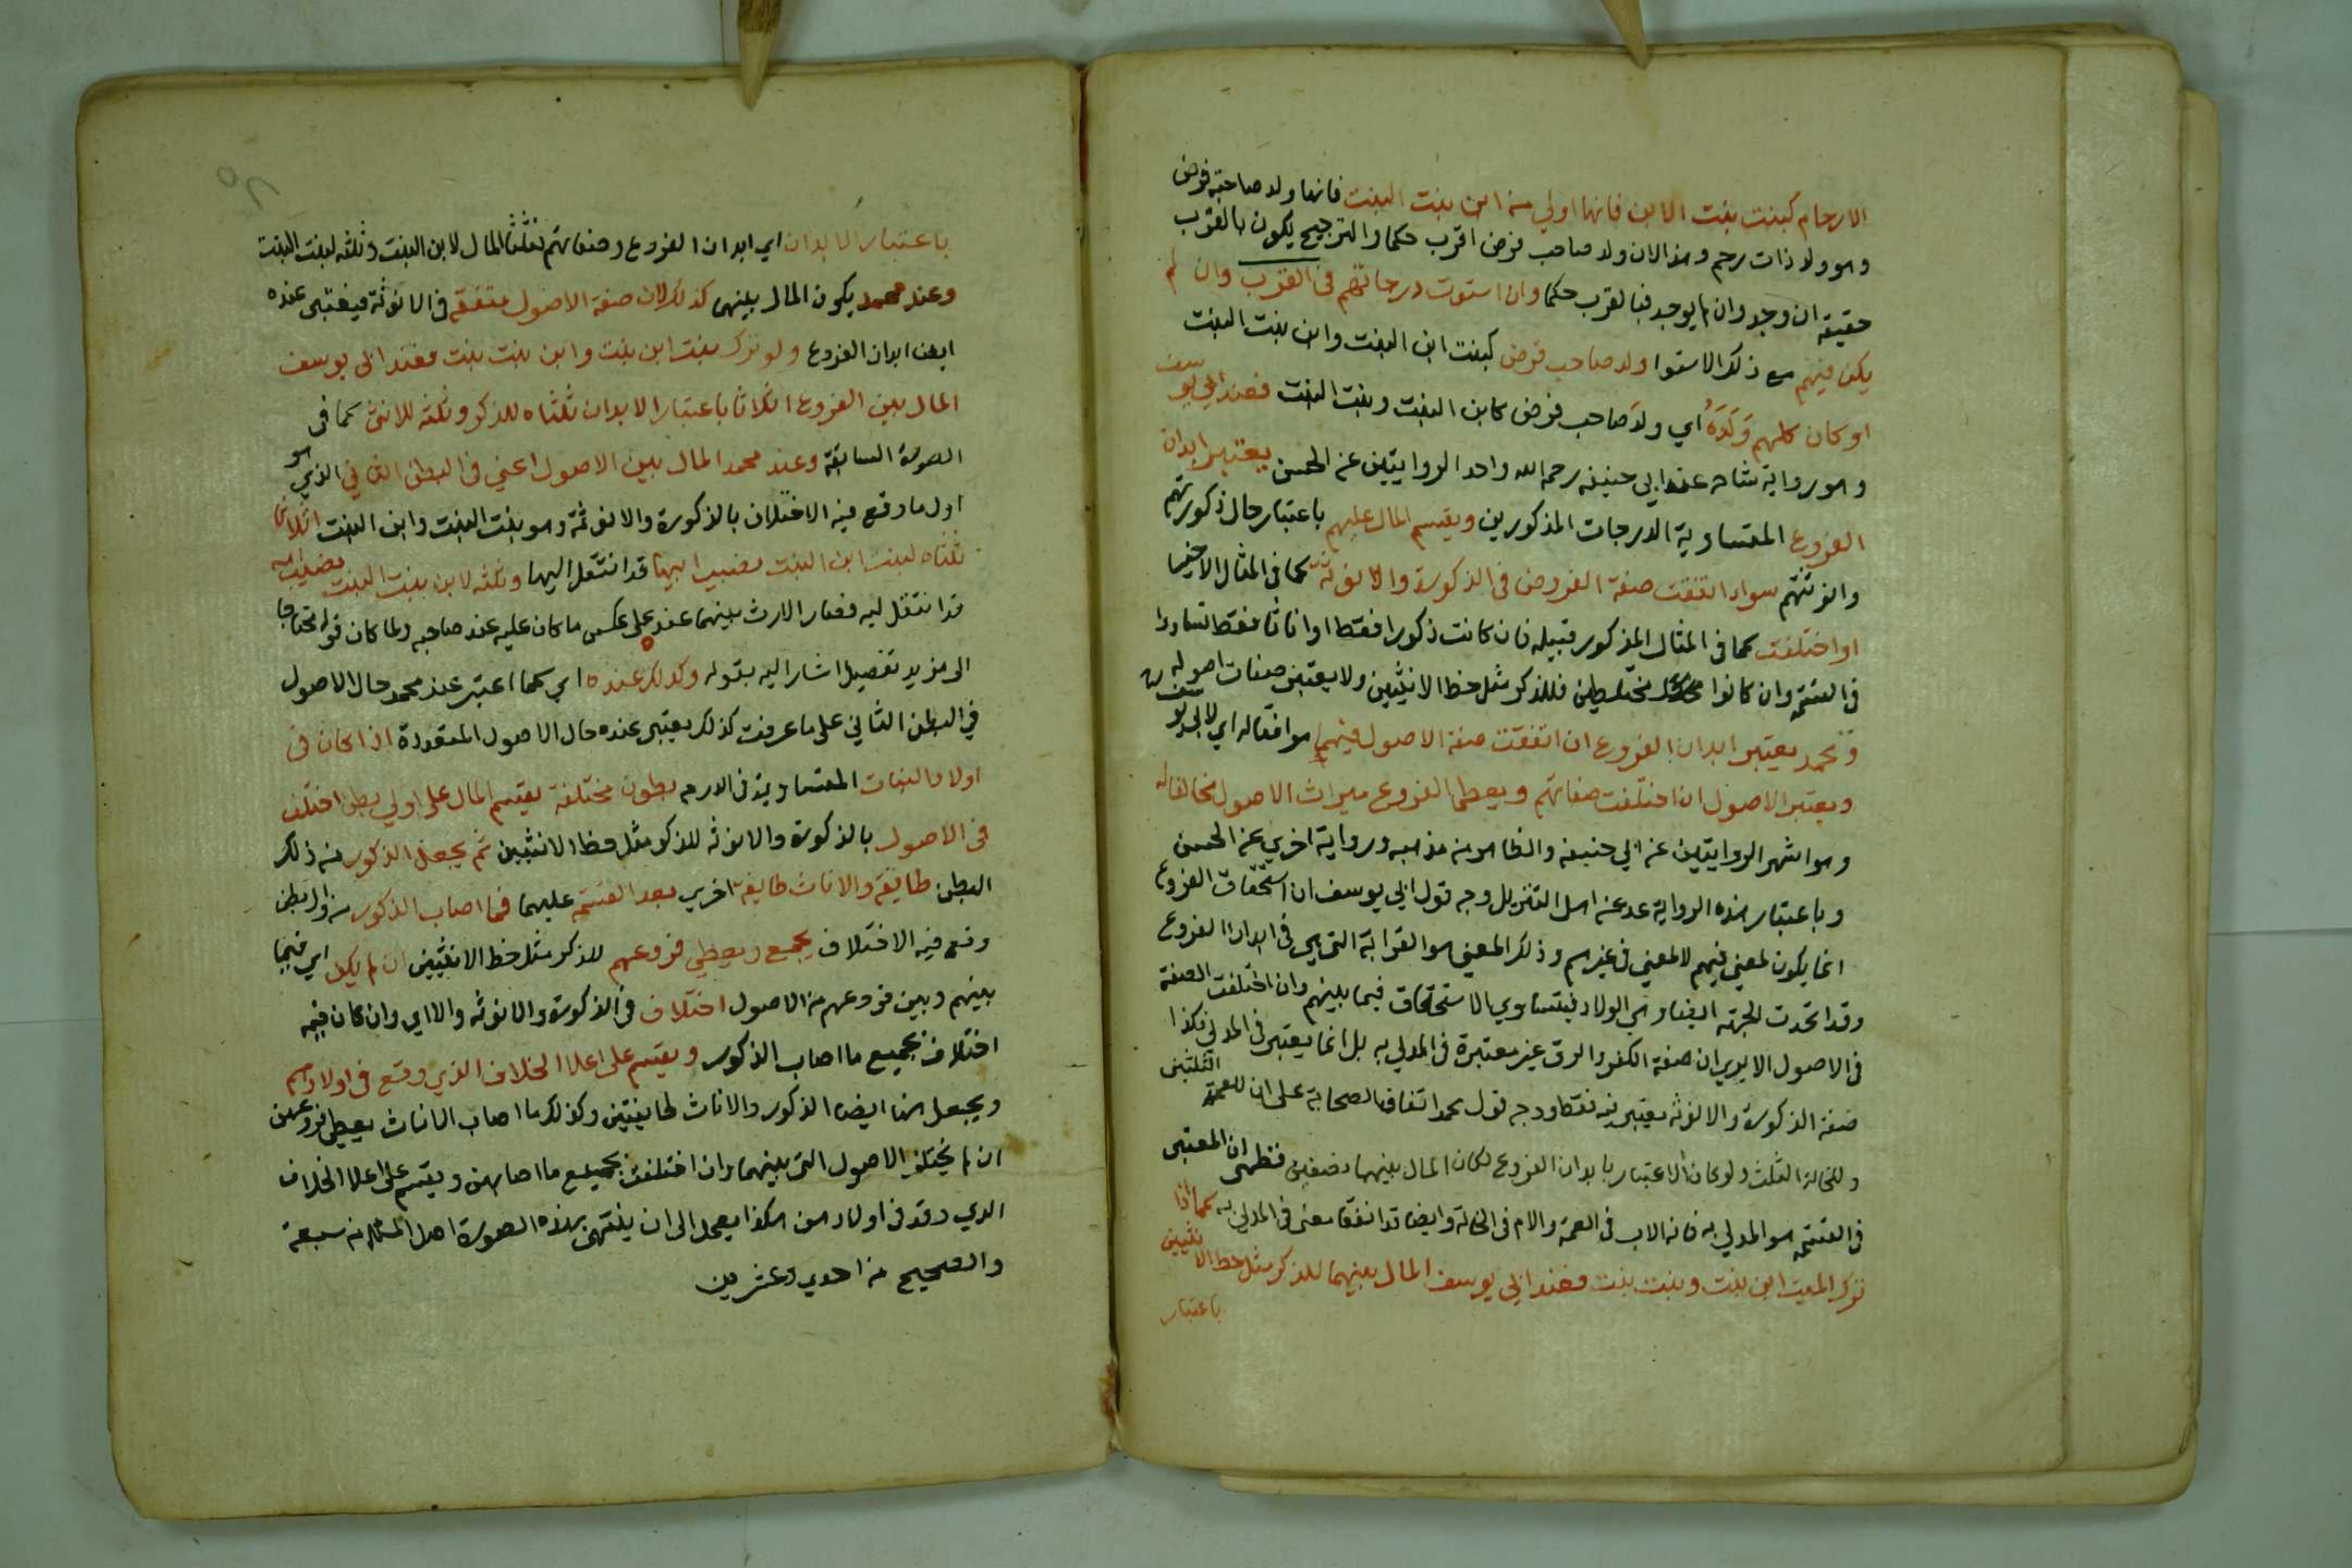 الارحام كبنت بنت الابن فانها اولي من ابن بنت البنت فانها ولد صاحبة فرض
وهو ولد ذات رحم وهذا لان ولد صاحب فرض اقرب حكما والترجيح يكون بالقرب
حقيقة ان وجد وان لم يوجد فبالقرب حكما وان استوت درجاتهم في القرب وان لم
يكن فيهم مع ذلك الاستوا ولد صاحب فرض كبنت ابن البنت وابن بنت البنت
او كان كلهم وَلَدَهُ اي ولد صاحب فرض كابن البنت وبنت البنت فعند ابي يوسف
وهو رواية شاذه عند ابي حنيفه رحمه الله واحد الروايتين عن الحسن يعتبر ابدان
الفروع المتساوية الدرجات المذكورين ويقسم المال عليهم باعتبار حال ذكورتهم
وانوثتهم سواء اتفقت صفة الفروض في الذكورة والانوثة كما في المثال الاخير
او اختلفت كما في المثال المذكور قبيله فان كانت ذكورا فقط او اناثا فقط تساووا
في القسمة وان كانوا مختلطين فللذكر مثل حظ الانثيين ولا يعتبر صفات اصوله
ومحمد يعتبر ابدان الفروع ان اتفقت صفة الاصول فيهم موافقا له اي لابي يوسف
ويعتبر الاصول ان اختلفت صفاتهم ويعطي الفروع ميراث الاصول مخالفا له
وهو اشهر الروايتين عن ابي حنيفه والظاهر من مذهبه ورواية اخري عن الحسن
وباعتبار هذه الرواية عد عنه اهل التنزيل وجه قول ابي يوسف ان استحقاق الفروع
انما يكون لمعني فيهم لا لمعني في غيرهم وذلك المعني هو القرابة التي هي في ابدان الفروع
وقد اتحدت الجهة ايضا وهي الولاد فيتساوي الاستحقاق فيما بينهم وان اختلفت الصفة
في الاصول الا يري ان صفة الكفر والرق غير معتبرة في المدلي به بل انما يعتبر في المدلي فكذا
صفة الذكورة والانوثه يعتبر فيه فقط ووجه قول محمد اتفاق الصحابة علي ان للعمة الثلثين
وللخالة الثلث ولو كان الاعتبار بابدان الفروع لكان المال بينهما نصفين فظهر ان المعتبر
في القسمة هو المدلي به فانه الاب في العمة والام في الخالة وايضا قد اتفقا معنى في المدلي به كما اذا
ترك الميت ابن بنت وبنت بنت فعند ابي يوسف المال بينهما للذكر مثل حظ الانثيين
باعتبار
باعتبار الابدان اي ابدان الفروع وصفاتهم فثلثا المال لابن البنت وثلثه لبنت البنت
وعند محمد يكون المال بينهم كذلك لان صفة الاصول متفقة في الانوثة فيعتبر عنده
ايضا ابدان الفروع ولو ترك بنت ابن بنت وابن بنت بنت فعند ابي يوسف
المال بين الفروع اثلاثا باعتبار الابدان ثلثاه للذكر وثلثه للانثى كما في
الصورة السابقة وعند محمد المال بين الاصول اعني في البطن الثاني الذي هو
اول ما وقع فيه الاختلاف بالذكورة والانوثة وهو بنت البنت وابن البنت اثلاثا
ثلثاه لبنت ابن البنت نصيب ابيها قد انتقل اليها وثلثه لابن بنت البنت نصيب امه
قد انتقل اليه فصار الارث بينهما عنده علي عكس ما كان عليه عند صاحبه ولما كان قوله محتاجا
الى مزيد تفصيل اشار اليه بقوله وكذلك عنده اي كما اعتبر عند محمد حال الاصول
في البطن الثاني على ما عرفت كذلك يعتبر عنده حال الاصول المتعددة اذا كان في
اولاد البنات المتساوية في الدرجه بطون مختلفة يقسم المال على اولي بطن اختلف
في الاصول بالذكورة والانوثه للذكر مثل حظ الانثيين ثم يجعل الذكور من ذلك
البطن طايفة والاناث طايفة اخري بعد القسمة عليهما فما اصاب الذكور من اول بطن
وقع فيه الاختلاف يجمع ويعطي فروعهم للذكر مثل حظ الانثيين ان لم يكن اي فيما
بينهم وبين فروعهم من الاصول اختلاف في الذكورة والانوثه والا اي وان كان فيه
اختلاف يجميع ما اصاب الذكور ويقسم على اعلا الخلاف الذي وقع في اولادهم
ويجعل هنا ايضا الذكور والاناث طايفتين وكذلك ما اصاب الاناث يعطي فروعهن
ان لم يختلف الاصول التي بينهما وان اختلفت يجميع ما اصابهن ويقسم على اعلا الخلاف
الذي وقد في اولادهن هكذا يعمل الى ان ينتهي بهذه الصورة اصل المسئله من سبعة
والصحيح من احدي وعشرين